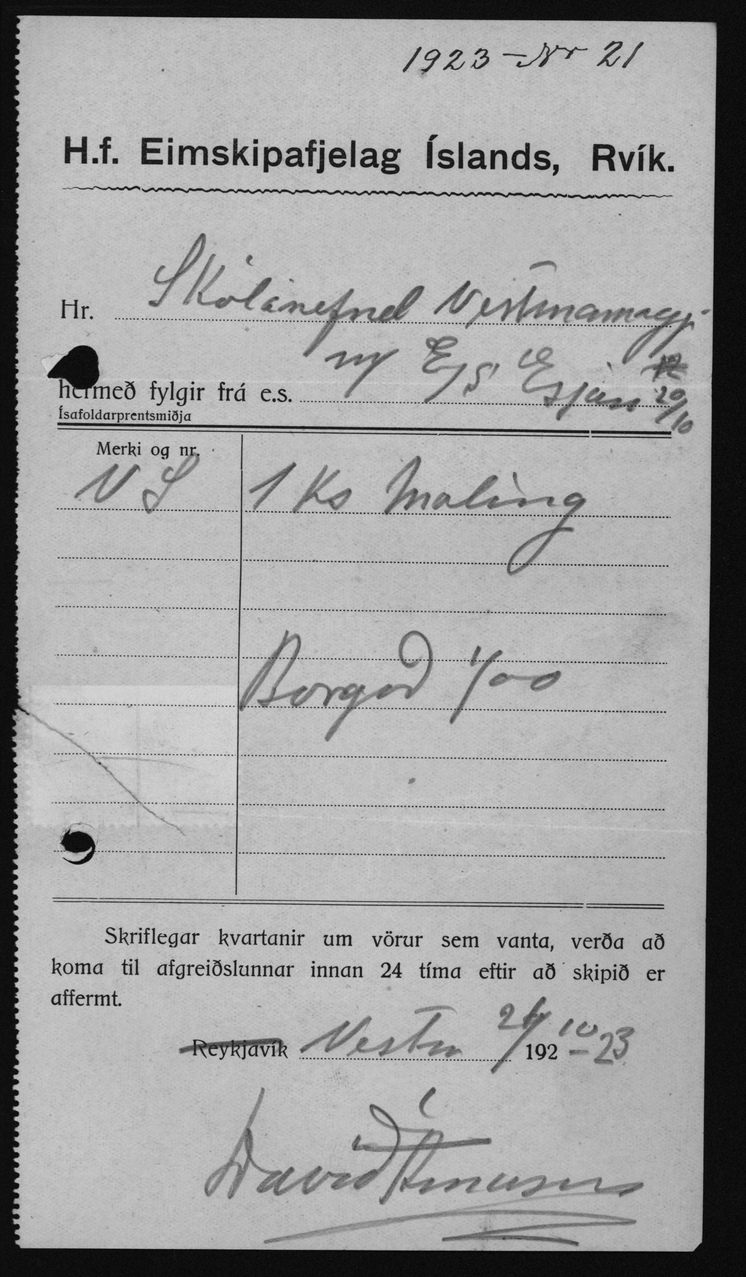 1923 – Nr 21
H.f. Eimskipafjelag Íslands, Rvík.
Hr. Skólanefnd Vestmannaeyj
hermeð fylgir frá e.s. E/S Esjan 20/10
Ísafoldarprentsmiðja
Merki og nr.
V S 1 Ks Maling
Borgað 1/00
Skriflegar kvartanir um vörur sem vanta, verða að
koma til afgreiðslunnar innan 24 tíma eftir að skipið er
affermt.
Reykjavík Vestm 192 10-23
Davíð